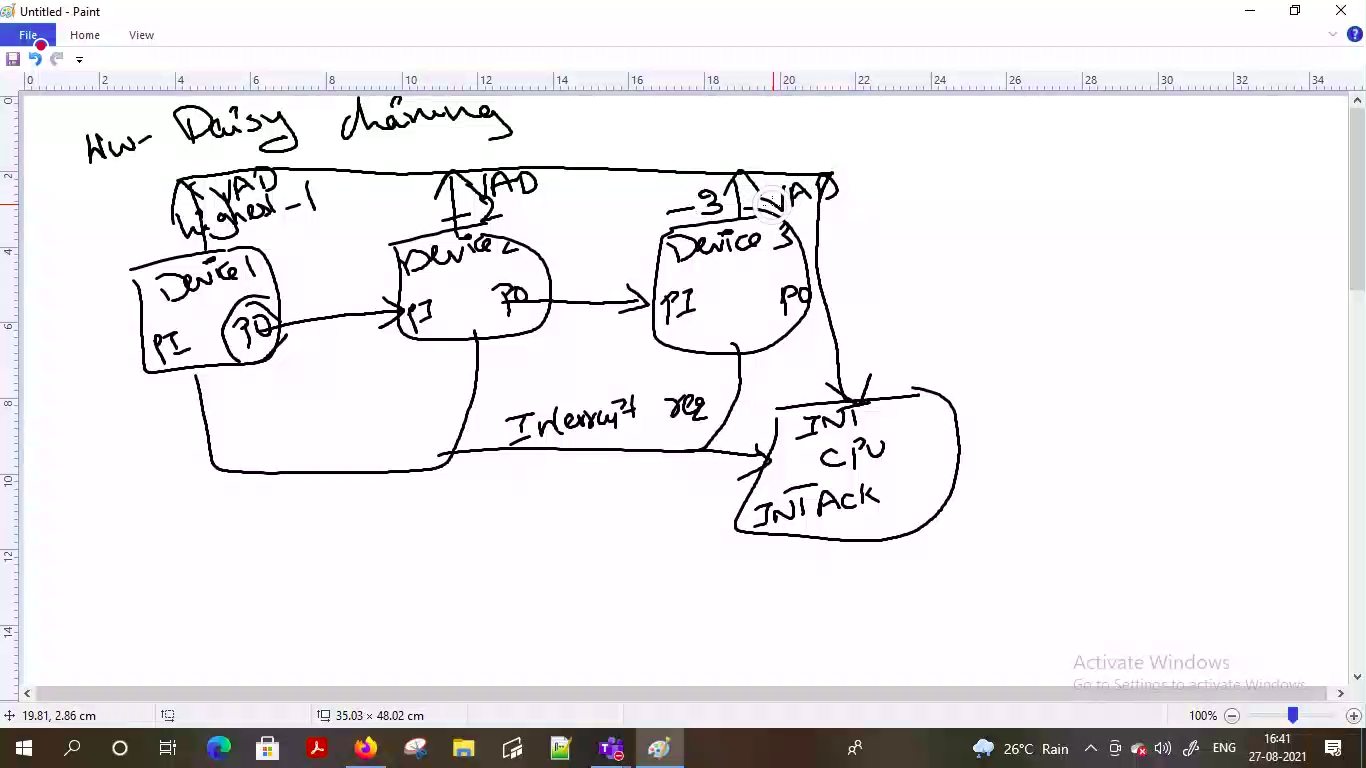 Untitled - Paint
File Home View
0 2 4 6 8 10 12 14 16 18 20 22 24 26 28 30 32 34
0
2
4
6
8
10
12
14
HW- Daisy chaining
VAD VAD VAD
highest - 1 - 2 - 3 -
Device 1 Device 2 Device 3
PI PO PI PO PI PO
Interrupt req
INT
CPU
INTACK
Activate Windows
Go to Settings to activate Windows.
19.81, 2.86 cm 35.03 × 48.02 cm 100%
26°C Rain ENG 16:41
27-08-2021